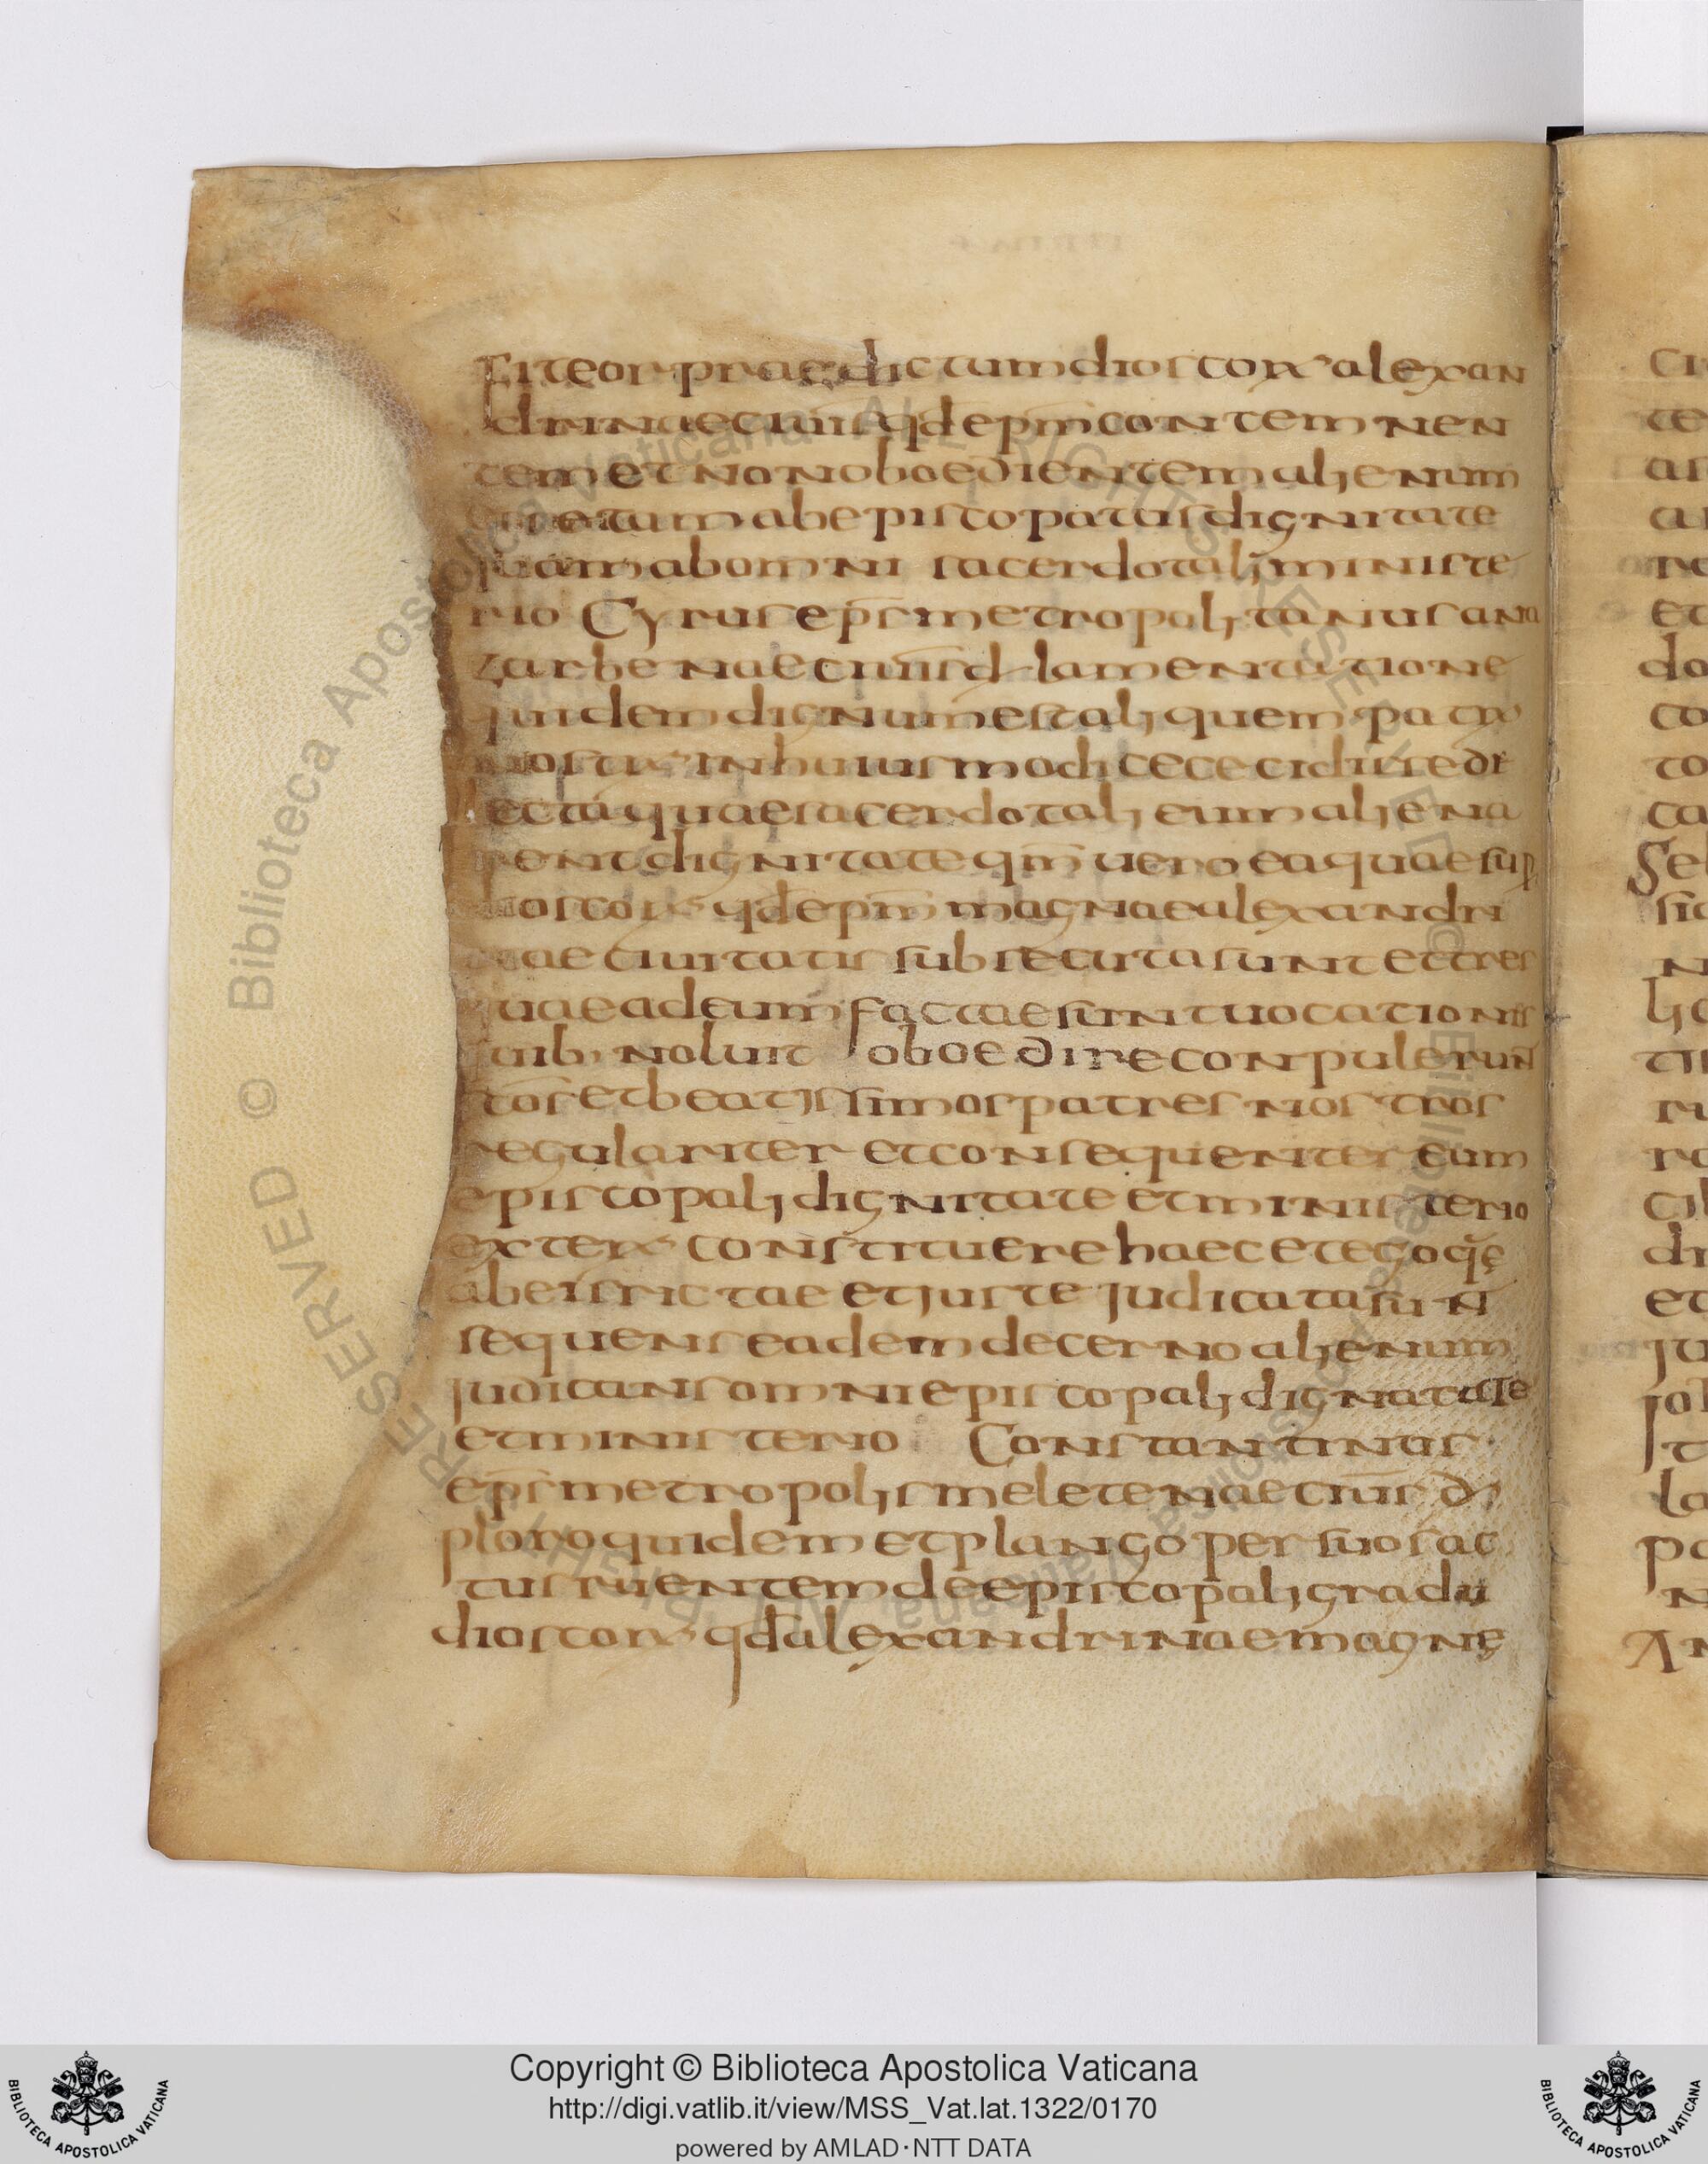 fiteor praedictum dioscorū alexan
drinae ciuits qd epm contemnen
tem et non oboedientem alienum
tam ab episcopatus dignitate
quam ab omni sacerdotali ministe
rio Cyrus eps metropolitanus ana
zarbenae ciuits d lamentatione
quidem dignum est aliquem patrū
nostrū in huiusmodi cececidisse di
lecta quae sacerdotali eum aliena
rent dignitate qm uero ea quae sup
dioscorū qd epm magnae alexandri
nae ciuitatis subsecuta sunt et tres
quae ad eum factae sunt uocationis
quib; noluit oboedire conpulerun
tos et beatissimos patres nostros
regulariter et consequenter eum
episcopali dignitate et ministerio
exterū constituere haec et ego quę
ab eis ricte et juste judicata sun
sequens eadem decerno alienum
judicans omni episcopali dignatate
et ministerio Constantinus
eps metropolis meletenae ciuits d
ploro quidem et plango per suos ac
tus ruentem de episcopali gradu
dioscorū qd alexandrinae magnę
Copyright © Biblioteca Apostolica Vaticana
http://digi.vatlib.it/view/MSS_Vat.lat.1322/0170
powered by AMLAD·NTT DATA
BIBLIOTECA APOSTOLICA VATICANA
BIBLIOTECA APOSTOLICA VATICANA